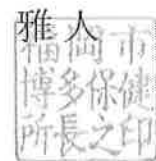 雅人
福岡市
博多保健
所長之印